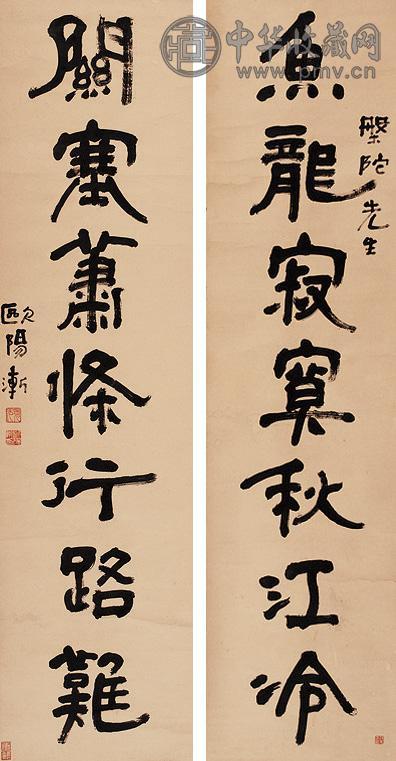 中华收藏网
www.pmv.cn
槃陀先生
魚龍寂寞秋江冷
關塞蕭條行路難
歐陽漸